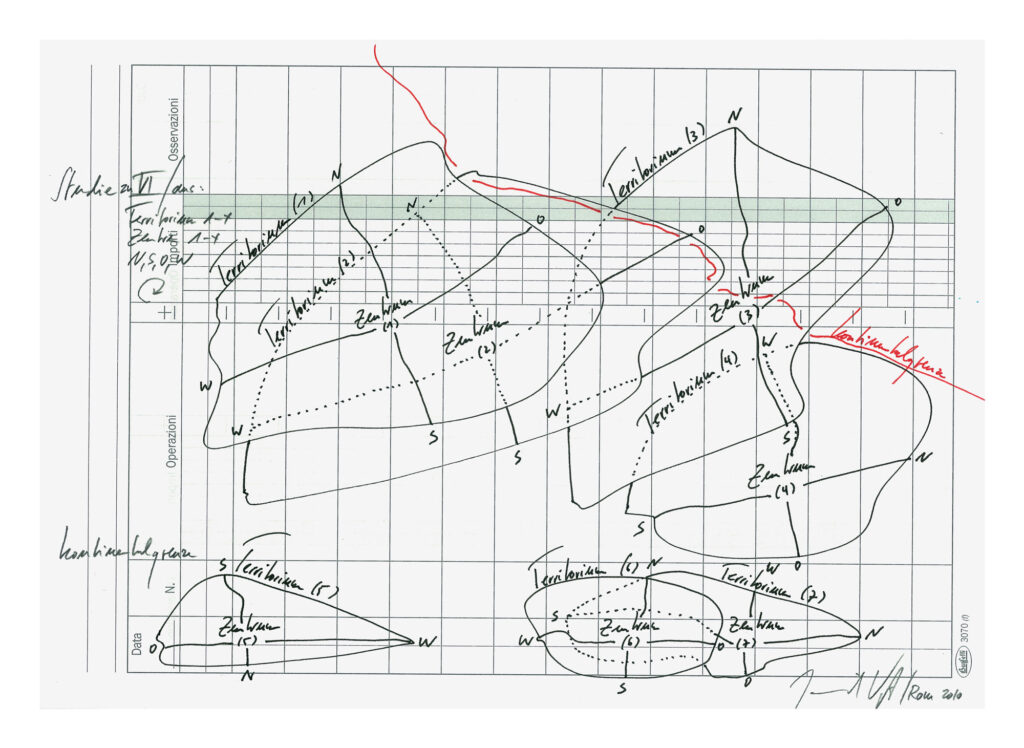 Studie zu VI / aus:
Territorium 1-7
Zentrum 1-7
N, S, O, W
Osservazioni
Importi
Operazioni
N.
Data
+
Territorium (1)
N
O
S
W
Zentrum
(1)
Territorium (2)
N
O
S
W
Zentrum
(2)
Territorium (3)
N
O
S
W
Zentrum
(3)
Territorium (4)
W
N
O
S
Zentrum
(4)
Kontinentalgrenze
Kontinentalgrenze
Territorium (5)
S
O
W
N
Zentrum
(5)
Territorium (6)
N
W
O
S
Zentrum
(6)
Territorium (7)
W
S
N
O
Zentrum
(7)
buffetti
3070
/ Rom 2010